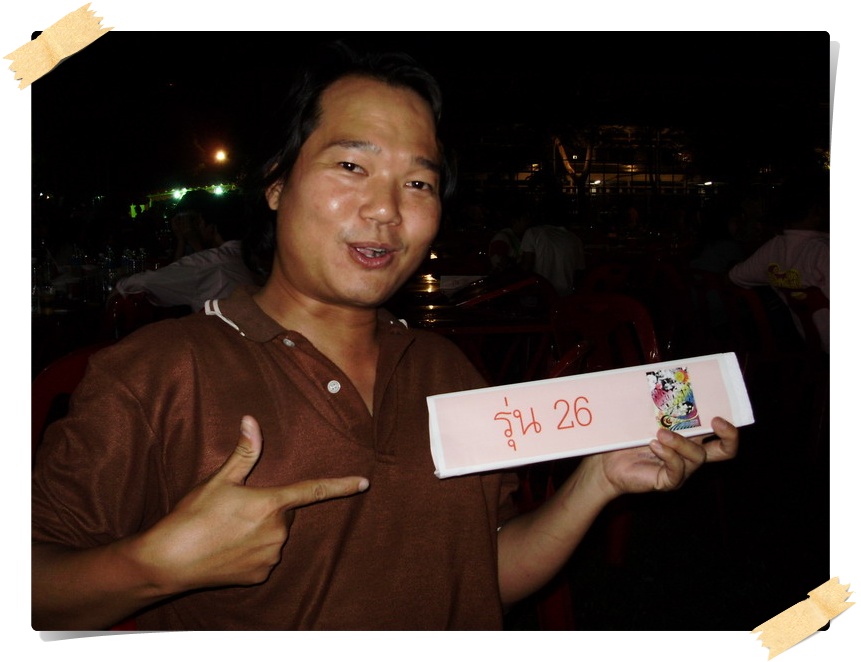 รุ่น 26